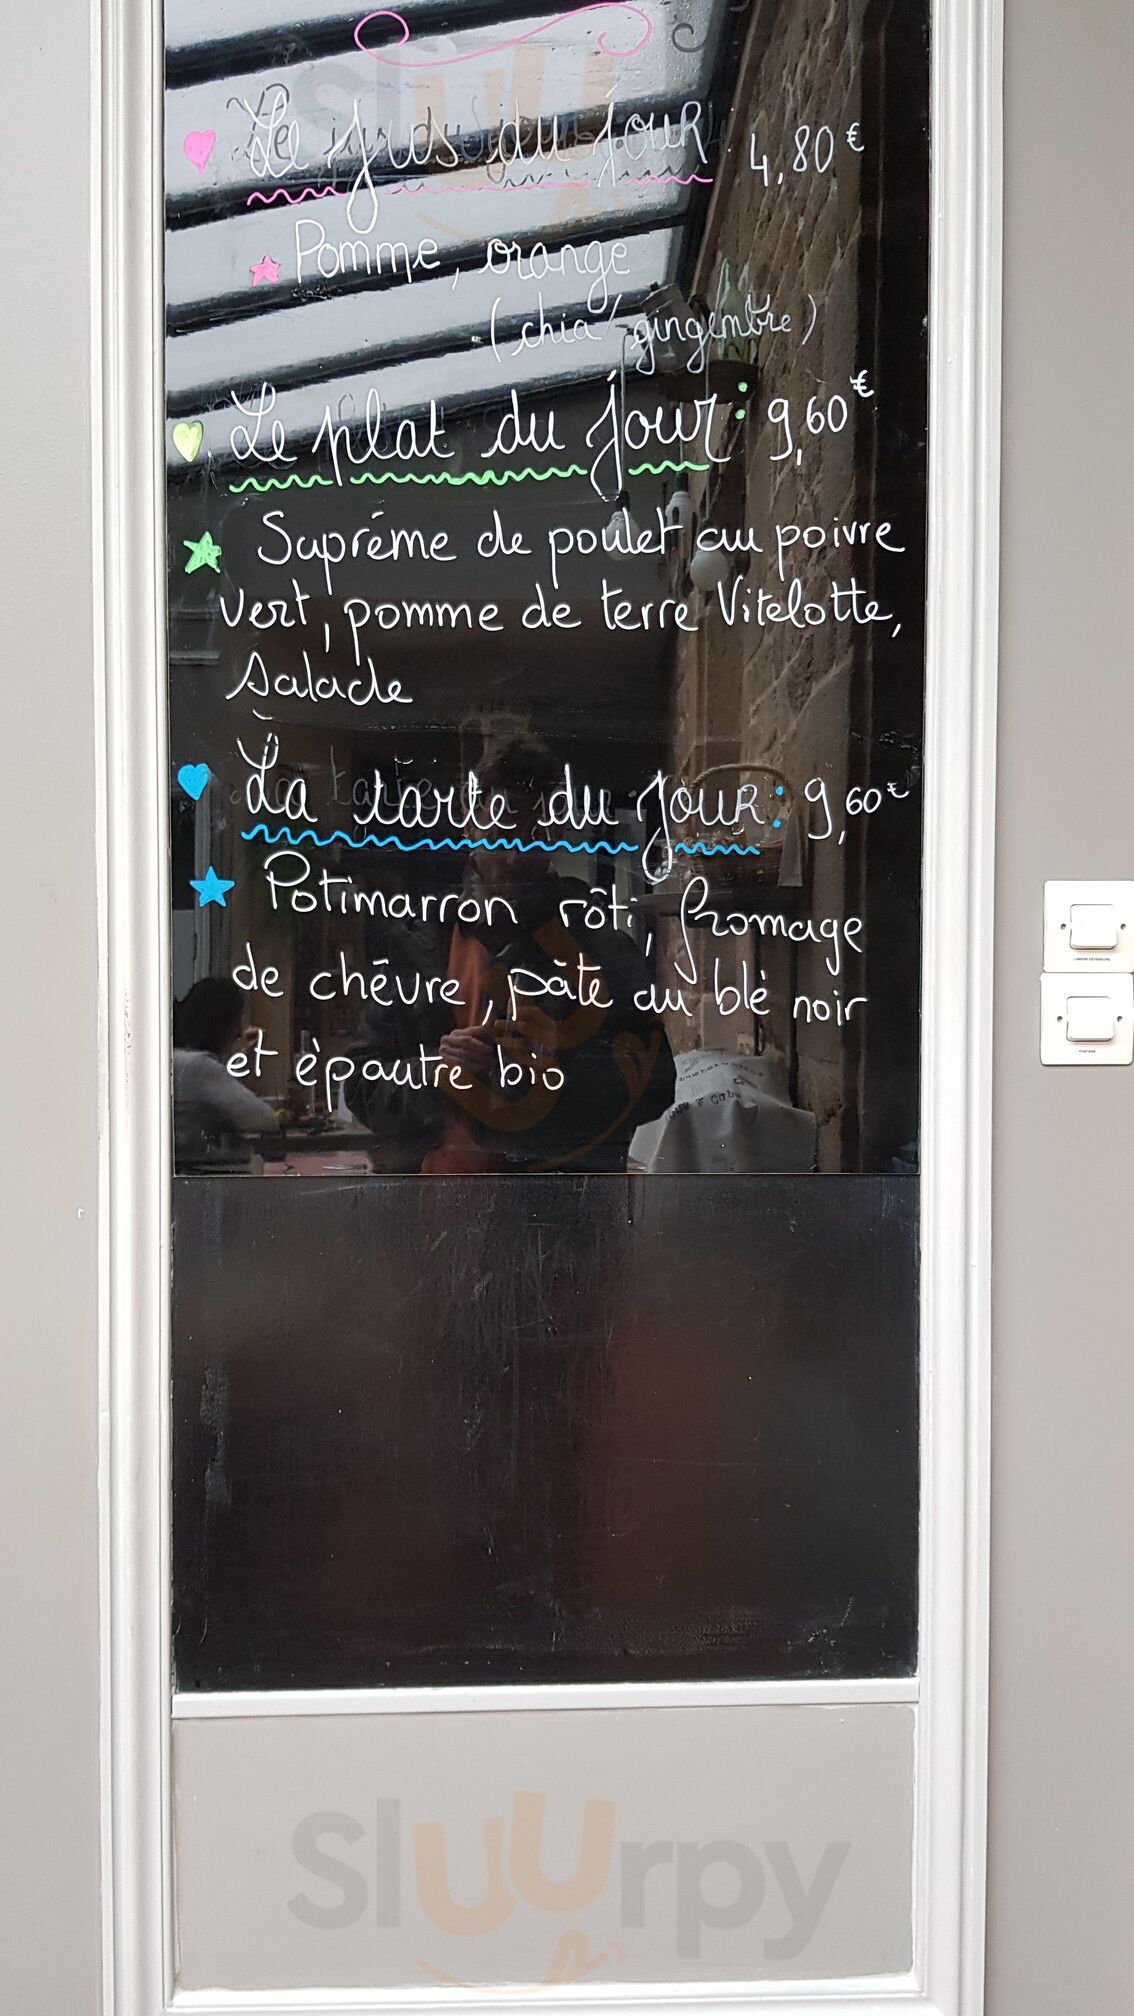 Le jus du jour : 4,80 €
Pomme, orange
(chia/gingembre)
Le plat du jour : 9,60 €
Suprême de poulet au poivre
vert, pomme de terre Vitelotte,
salade
La tarte du jour : 9,60 €
Potimarron rôti, fromage
de chèvre, pâte au blé noir
et épautre bio
LUMIERE EXTERIEURE
FONTAINE
Sluurpy